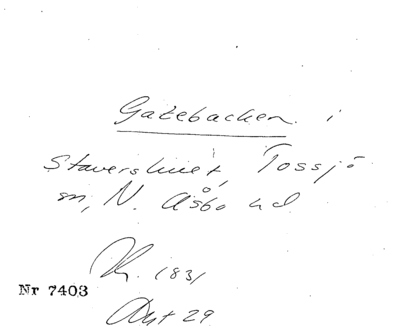 Gatebacken i
Stavershult, Tossjö
sn, N. Åsbo hd
Kr. 1831
Nr 7403
Akt 29